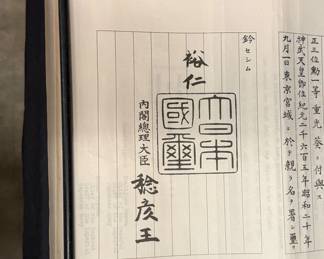 正三位勲一等重光葵ニ付與ス
神武天皇即位紀元二千六百五年昭和二十年
九月一日東京宮城ニ於テ親ラ名ヲ署シ璽ヲ
鈐セシム
裕仁
大日本
國璽
內閣總理大臣
稔彦王